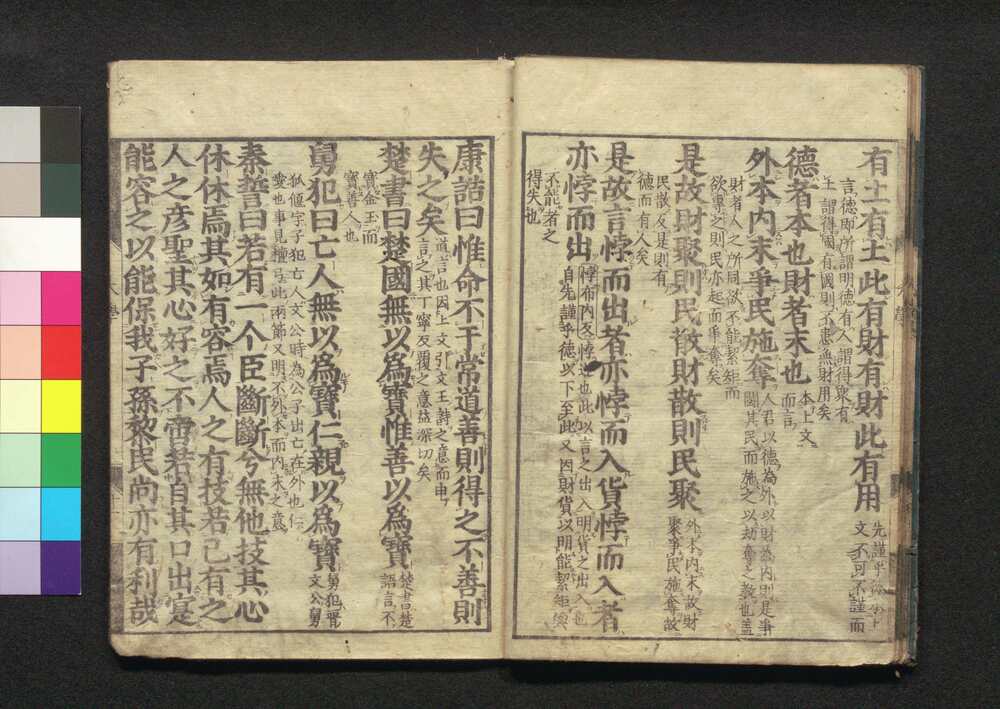 有人此有土有土此有財有財此有用
先謹乎德承上文不可不謹而
言德即所謂明德有人謂得衆有
土謂得國有國則不患無財用矣
德者本也財者末也
本上文
而言
外本內末爭民施奪
人君以德為外以財為內則是爭
鬪其民而施之以劫奪之教也蓋
財者人之所同欲不能絜矩而
欲專之則民亦起而爭奪矣
是故財聚則民散財散則民聚
外本內末故財
聚爭民施奪故
民散反是則有
德而有人矣
是故言悖而出者亦悖而入貨悖而入者
亦悖而出
悖布內反悖逆也此以言之出入明貨之出入也
自先謹乎德以下至此又因財貨以明能絜矩與
不能者之
得失也
康誥曰惟命不于常道善則得之不善則
失之矣
道言也因上文引文王詩之意而申
言之其丁寧反覆之意益深切矣
楚書曰楚國無以為寶惟善以為寶
楚書楚
語言不
寶金玉而
寶善人也
舅犯曰亡人無以為寶仁親以為寶
舅犯晉
文公舅
狐偃字子犯亡人文公時為公子出亡在外也仁
愛也事見檀弓此兩節又明不外本而內末之意
秦誓曰若有一个臣斷斷兮無他技其心
休休焉其如有容焉人之有技若己有之
人之彥聖其心好之不啻若自其口出寔
能容之以能保我子孫黎民尚亦有利哉